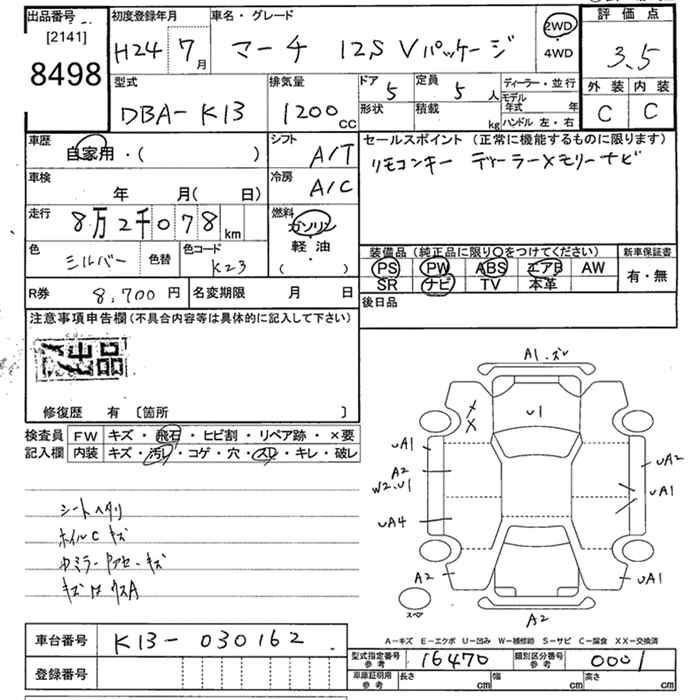 出品番号 初度登録年月 車名・グレード 評価点
[2141]
8498
H24 7月 マーチ 12S Vパッケージ 2WD・4WD 3.5
外装 内装
C C
型式 排気量 ドア 定員 ディーラー・並行
DBA-K13 1200CC 5 5人 モデル年式 年
形状 積載 kg ハンドル 左・右
車歴 シフト セールスポイント (正常に機能するものに限ります)
自家用・( ) A/T リモコンキー ディーラーメモリーナビ
車検 冷房
年 月(日) A/C
走行 燃料
8万2千078km ガソリン・軽油・( )
色 色コード
シルバー 色替 K23
装備品(純正品に限り〇をつけてください) 新車保証書
PS PW ABS エアB AW 有・無
SR ナビ TV 本革
R券 8,700円 名変期限 月 日 後日品
注意事項申告欄(不具合内容等は具体的に記入して下さい)
修復歴 有 〔箇所 〕
検査員 FW キズ・飛石・ヒビ割・リペア跡・×要
記入欄 内装 キズ・汚レ・コゲ・穴・スレ・キレ・破レ
シートヘタリ
ホイルC キズ
A1.ズレ
U1
UA1
A2
W2.U1
UA4
A2
UA2
UA1
UA1
A2
スペア
A-キズ E-エクボ U-凹み W-補修跡 S-サビ C-腐食 XX-交換済
車台番号 K13-030162
登録番号
型式指定番号 参考 16470 類別区分番号 参考 0001
車庫証明用 参考 長さ cm 幅 cm 高さ cm